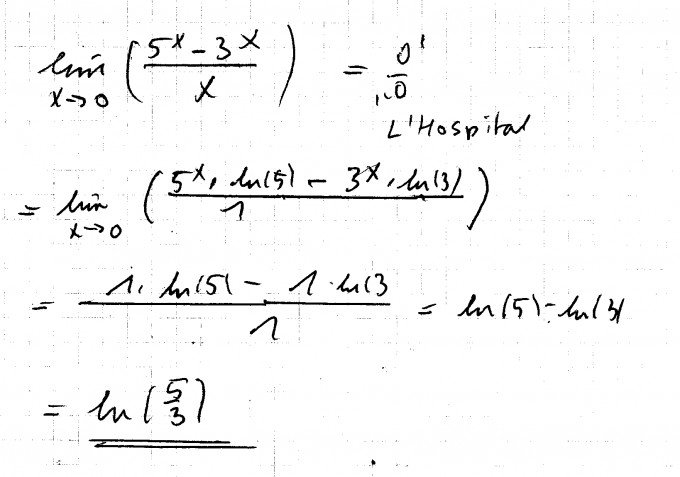 lim x→0 ( (5^x - 3^x) / x ) = "0/0"
L'Hospital
= lim x→0 ( (5^x · ln(5) - 3^x · ln(3)) / 1 )
= (1 · ln(5) - 1 · ln(3) / 1 = ln(5) - ln(3)
= ln(5/3)